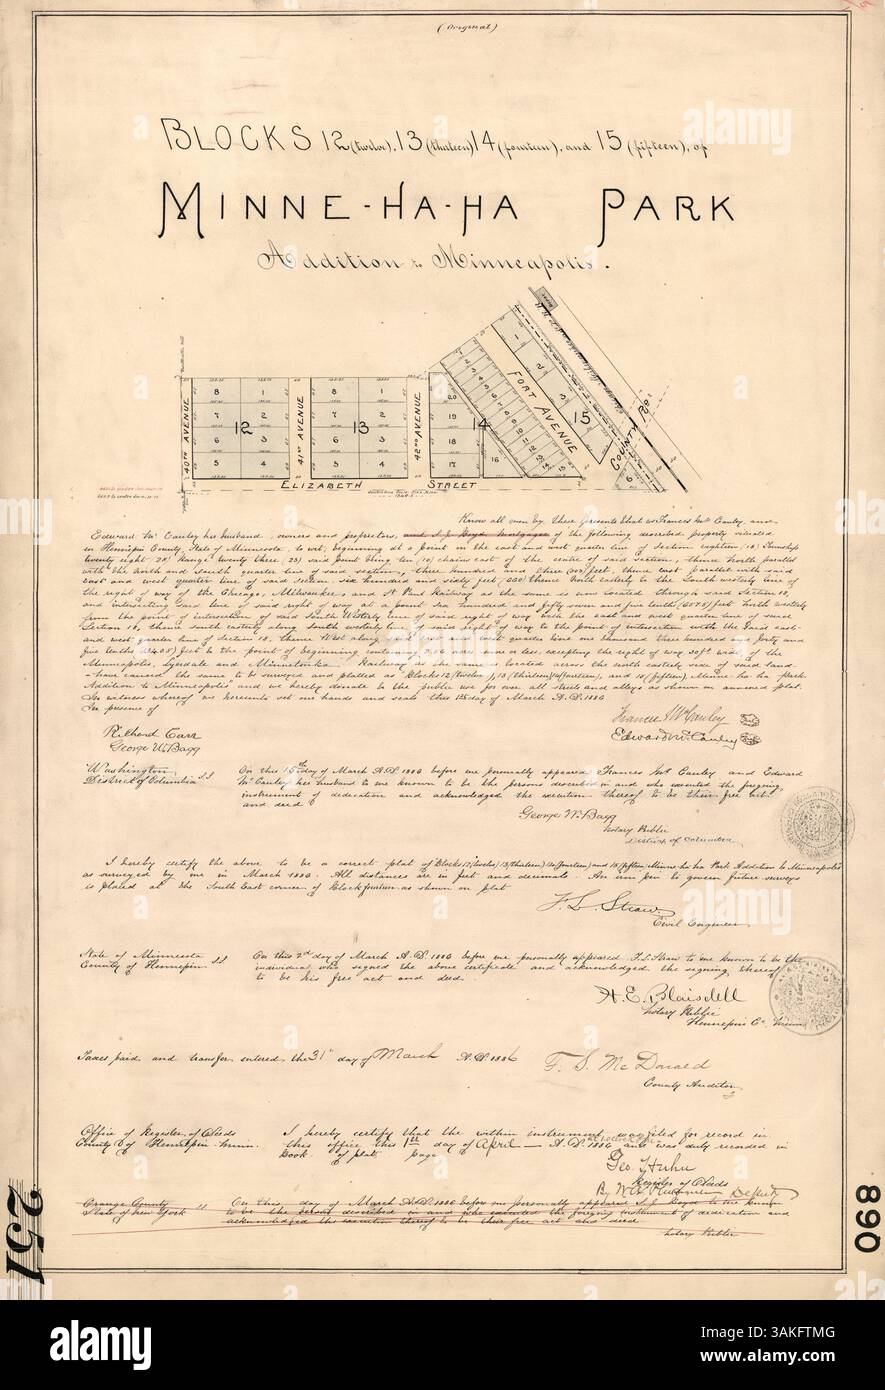 (Original)
BLOCKS 12 (twelve), 13 (thirteen) 14 (fourteen), and 15 (fifteen), of
MINNE-HA-HA PARK
Addition to Minneapolis.
40TH AVENUE
41ST AVENUE
42ND AVENUE
FORT AVENUE
COUNTY RD.
ELIZABETH STREET
12
13
14
15
8 1
7 2
6 3
5 4
8 1
7 2
6 3
5 4
20
19
18
17
16
Know all men by these presents that we Francis McCauley and
Edward McCauley her husband, owners and proprietors, and S. J. Boyd Mortgagee of the following described property situated
in Hennepin County, State of Minnesota, to wit; beginning at a point on the east and west quarter line of Section eighteen (18) Township
twenty eight (28) Range twenty three (23) said point being ten (10) chains east of the centre of said section, thence North parallel
with the north and south quarter line of said section, three hundred and three (303) feet, thence east parallel with said
east and west quarter line of said section six hundred and sixty feet (660) thence North easterly to the South westerly line of
the right of way of the Chicago, Milwaukee and St Paul Railway as the same is now located through said Section 18,
and intersecting said line of said right of way at a point six hundred and fifty seven and five tenths (657.5) feet North westerly
from the point of intersection of said South Westerly line of said right of way with the east and west quarter line of said
Section 18, thence south easterly along south westerly line of said right of way to the point of intersection with the said east
and west quarter line of Section 18, thence West along said east and west quarter line one thousand three hundred and forty and
five tenths feet to the point of beginning containing acres more or less, excepting the right of way 50 ft wide of the
Minneapolis, Lyndale and Minnetonka Railway as the same is located across the north easterly side of said land
have caused the same to be surveyed and platted as Blocks 12 (twelve), 13 (thirteen) 14 (fourteen), and 15 (fifteen), Minne-ha-ha Park
Addition to Minneapolis and we hereby donate to the public use for ever all streets and alleys as shown on annexed plat.
In witness whereof we hereunto set our hands and seals this day of March A.D. 1886
In presence of
Francis McCauley
Edward McCauley
Richard Carr
George W. Bagg
Washington
District of Columbia S.S
On this 15th day of March A.D. 1886 before me personally appeared Francis McCauley and Edward
McCauley her husband to me known to be the persons described in and who executed the foregoing
instrument of dedication and acknowledged the execution thereof to be their free act
and deed
George W. Bagg
Notary Public
District of Columbia
I hereby certify the above to be a correct plat of Blocks 12 (twelve) 13 (thirteen) 14 (fourteen) and 15 (fifteen) Minne-ha-ha Park Addition to Minneapolis
as surveyed by me in March 1886. All distances are in feet and decimals. An iron pin to govern future surveys
is placed at the South East corner of Block fourteen as shown on plat
F. L. Straw
Civil Engineer
State of Minnesota
County of Hennepin S.S
On this 2nd day of March A.D. 1886 before me personally appeared F. L. Straw to me known to be the
individual who signed the above certificate and acknowledged the signing thereof
to be his free act and deed.
H. E. Blaisdell
Notary Public
Hennepin Co Minn
Taxes paid and transfer entered the 31st day of March A.D. 1886
F. S. McDonald
County Auditor
Office of Register of Deeds
County of Hennepin Minn.
I hereby certify that the within instrument was filed for record in
this office this 1st day of April A.D. 1886 and was duly recorded in
Book of plats page
Geo. Huhn
Register of Deeds
Deputy
Orange County
State of New York SS
On this day of March A.D. 1886 before me personally appeared S. J. Boyd to me known
to be the person described in and who executed the foregoing instrument of dedication and
acknowledged the execution thereof to be their free act and deed
Notary Public
251
Q68
alamy
alamy
Image ID: 3AKFTMG
www.alamy.com